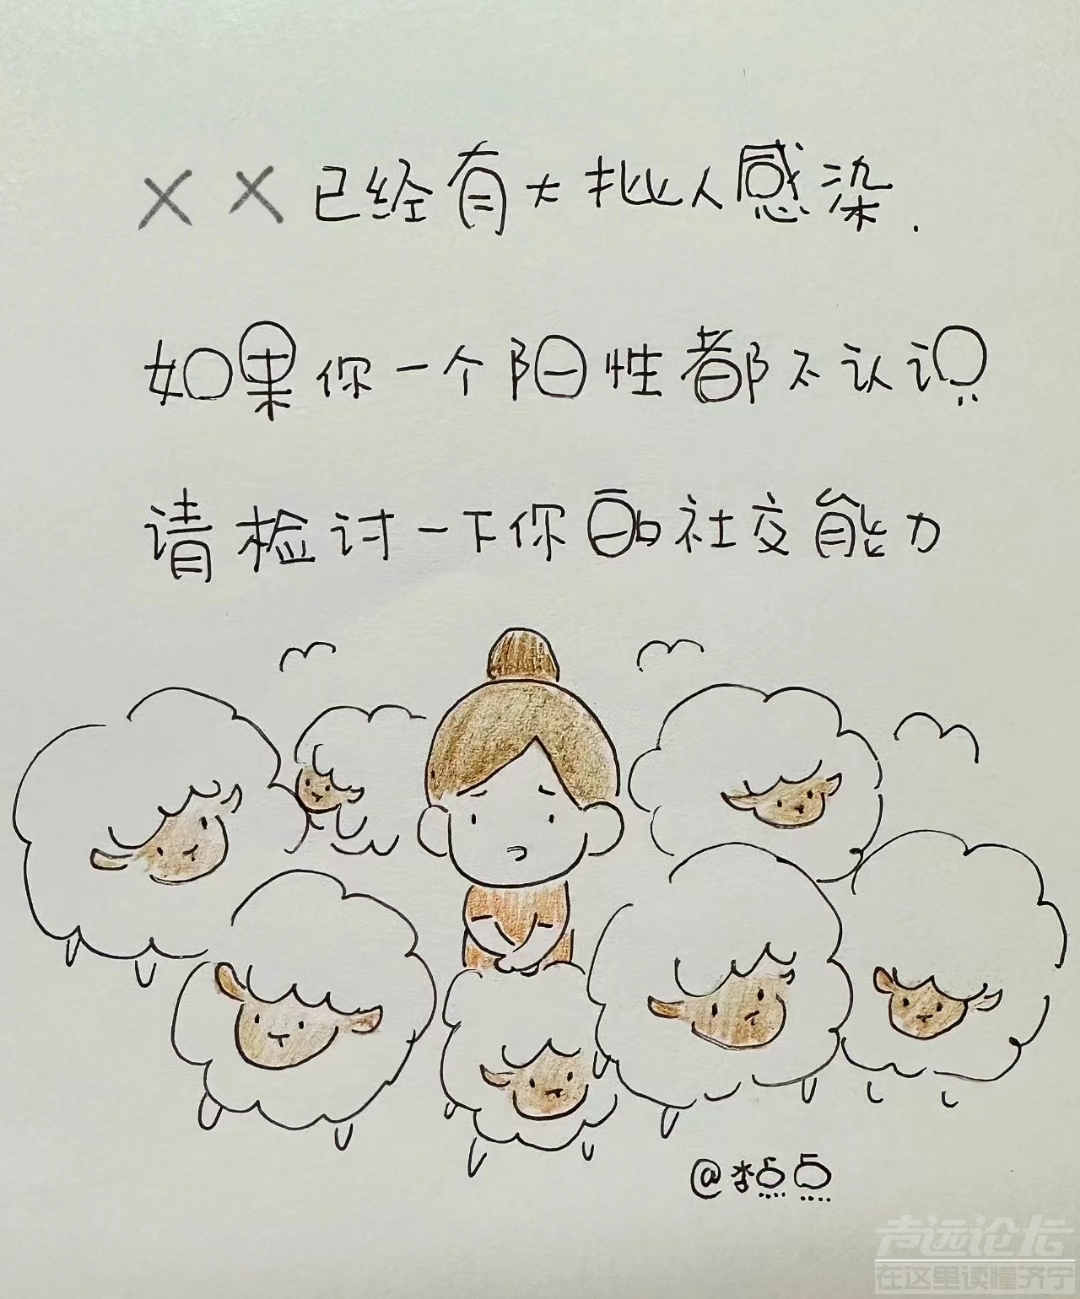 ××已经有大批人感染.
如果你一个阳性都不认识
请检讨一下你的社交能力
@李点点
声远论坛
在这里读懂济宁